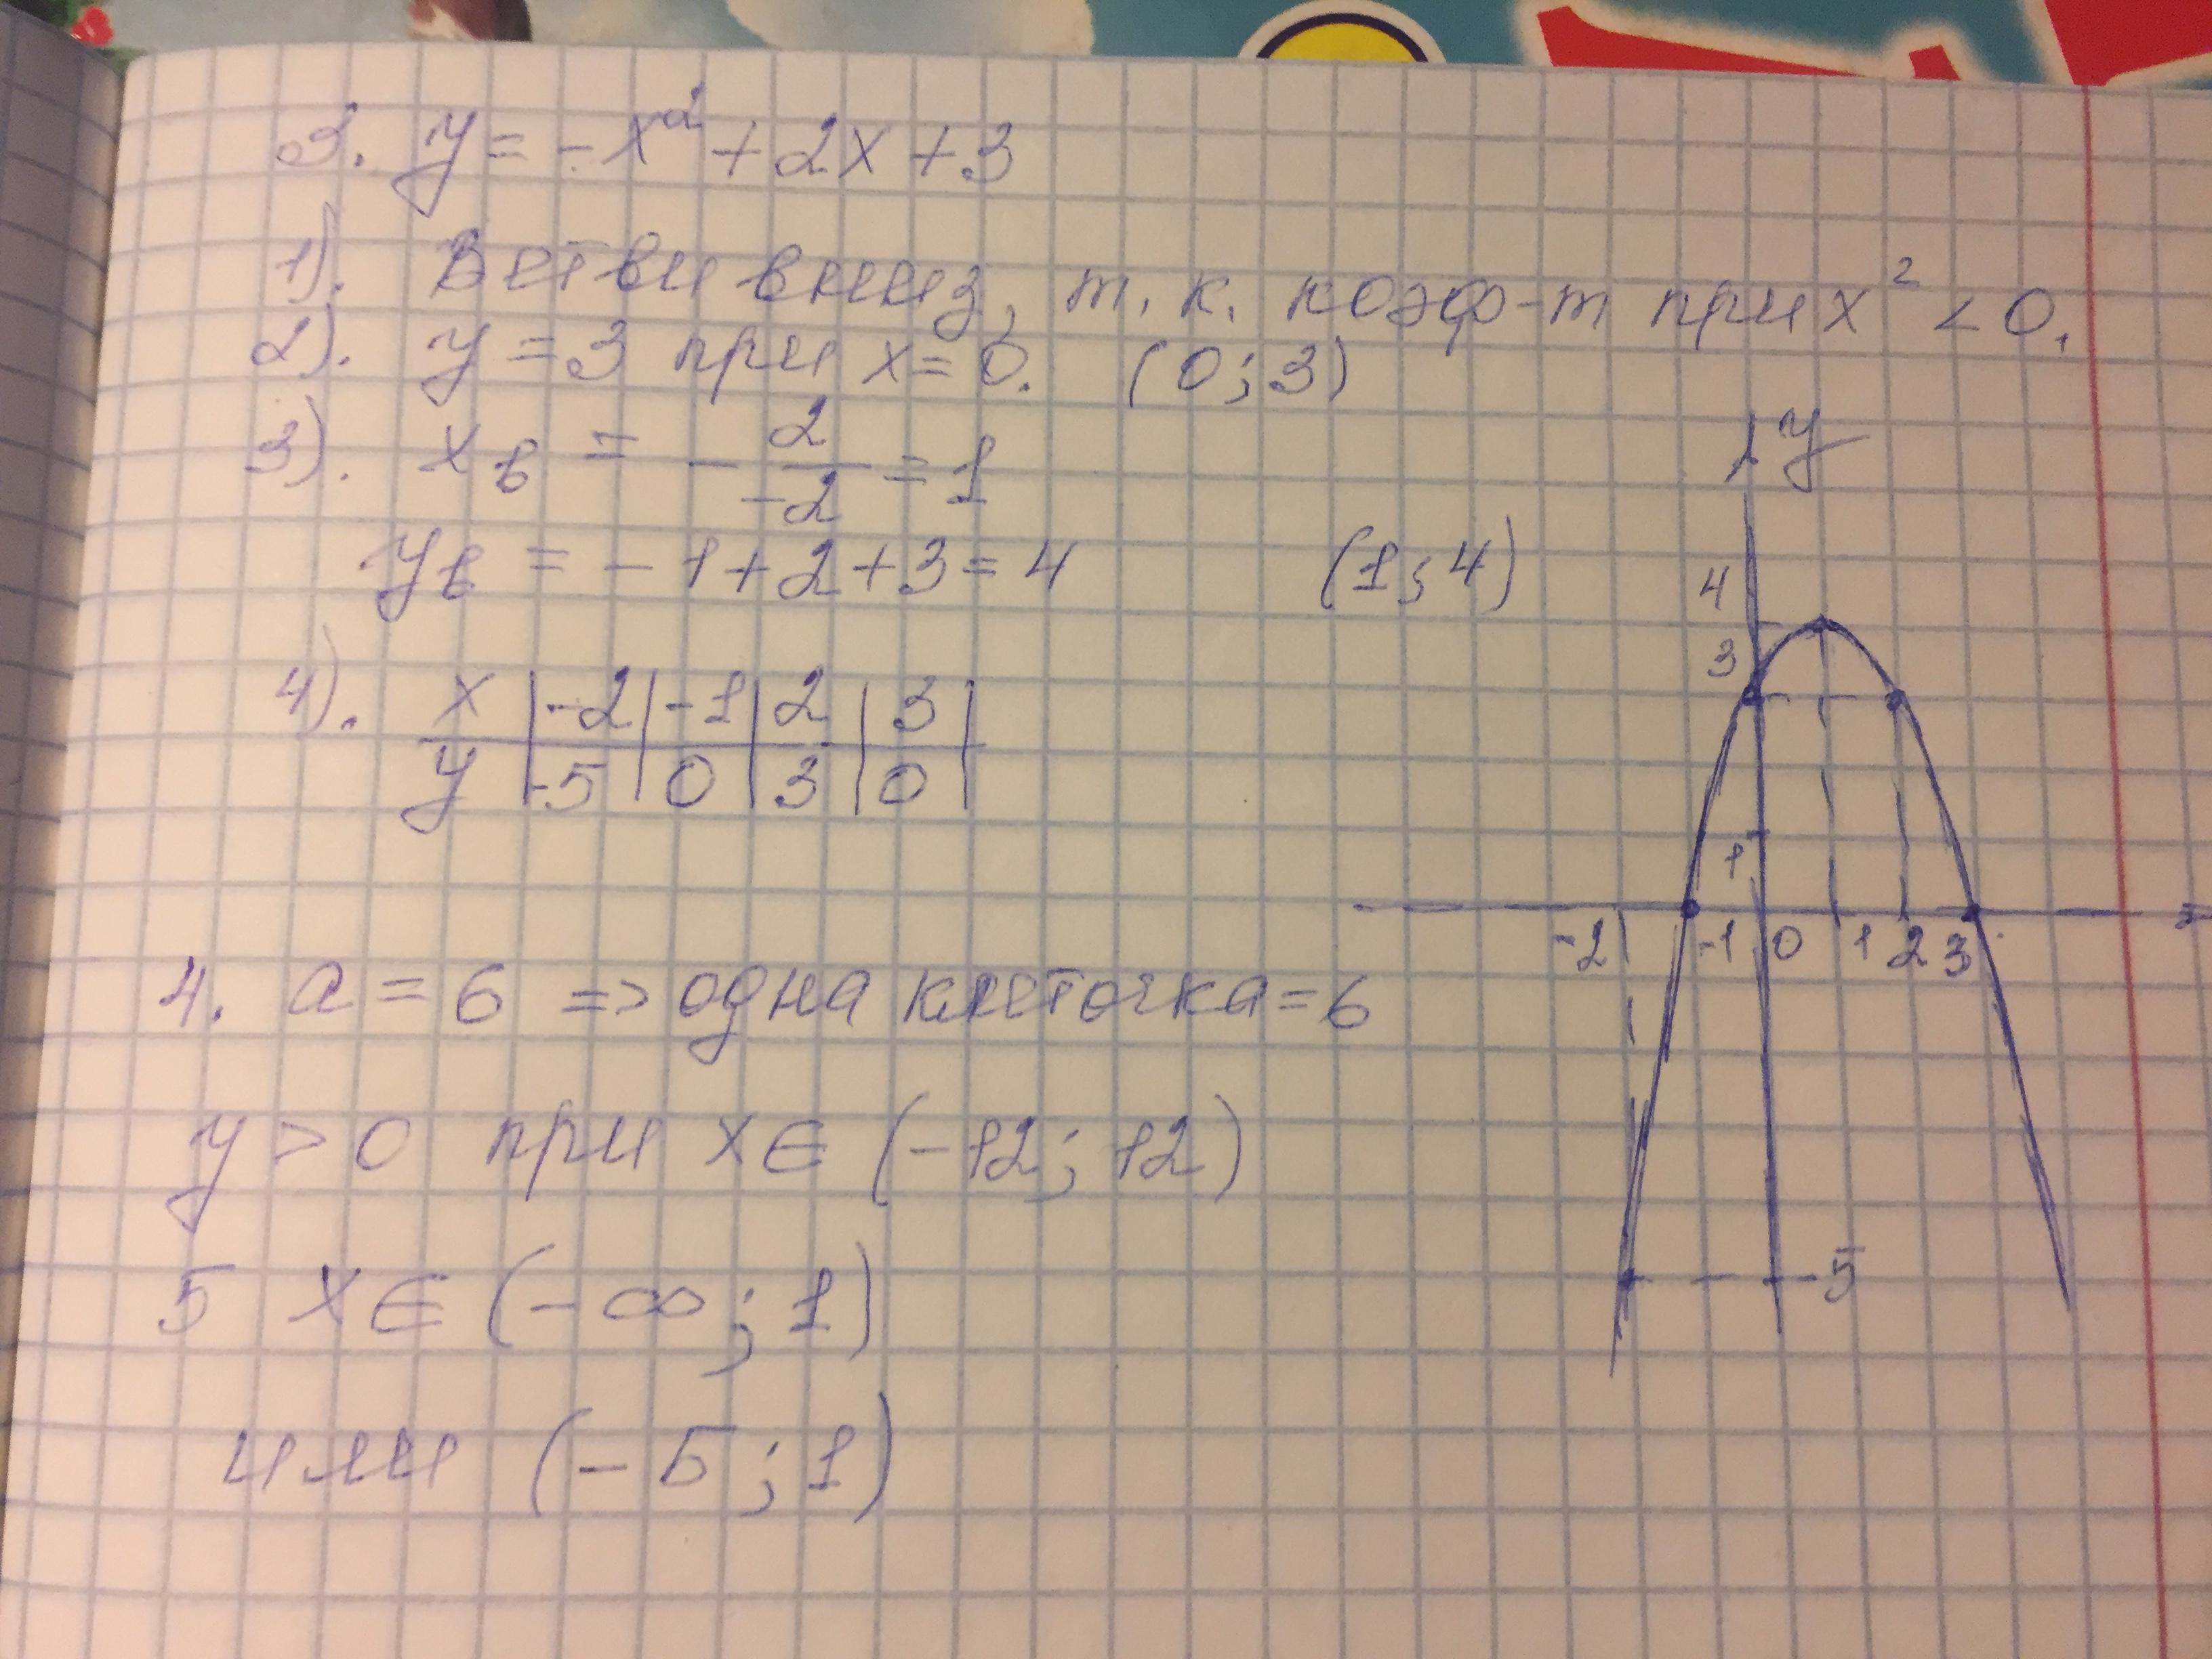 3. y = -x² + 2x + 3
1). Ветви вниз, т.к. коэф-т при x² < 0.
2). y = 3 при x = 0. (0; 3)
3). xв = - 2/-2 = 1
yв = -1 + 2 + 3 = 4 (1; 4)
4). x | -2 | -1 | 2 | 3 |
y | -5 | 0 | 3 | 0 |
y
4
3
1
-2 -1 0 1 2 3
-5
4. a = 6 => одна клеточка = 6
y > 0 при x ∈ (-12; 12)
5 x ∈ (-∞; 1)
или (-5; 1)